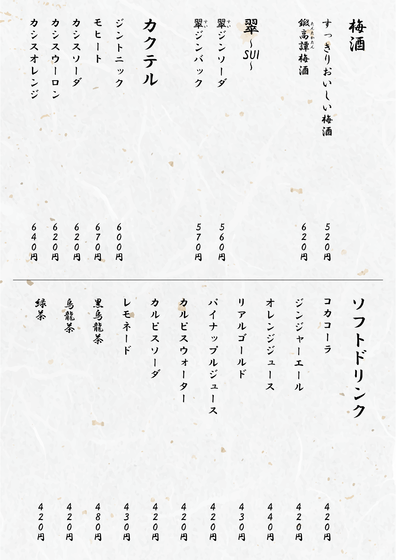 梅酒
すっきりおいしい梅酒 520円
鍛高譚梅酒 620円
翠 ~SUI~
翠ジンソーダ 560円
翠ジンバック 570円
カクテル
ジントニック 600円
モヒート 670円
カシスソーダ 620円
カシスウーロン 620円
カシスオレンジ 640円
ソフトドリンク
コカコーラ 420円
ジンジャーエール 420円
オレンジジュース 440円
リアルゴールド 430円
パイナップルジュース 420円
カルピスウォーター 420円
カルピスソーダ 420円
レモネード 430円
黒烏龍茶 480円
烏龍茶 420円
緑茶 420円